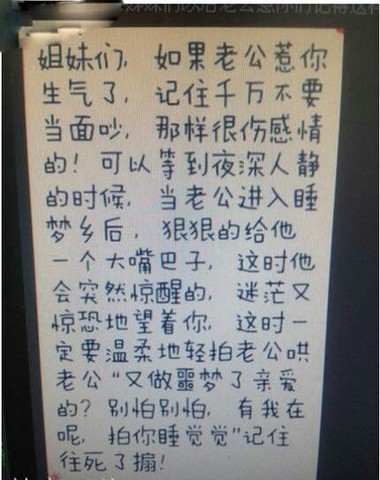 姐妹们，如果老公惹你
生气了，记住千万不要
当面吵，那样很伤感情
的！可以等到夜深人静
的时候，当老公进入睡
梦乡后，狠狠的给他
一个大嘴巴子，这时他
会突然惊醒的，迷茫又
惊恐地望着你，这时一
定要温柔地轻拍老公哄
老公“又做噩梦了亲爱
的？别怕别怕，有我在
呢，拍你睡觉觉”记住
往死了搧！